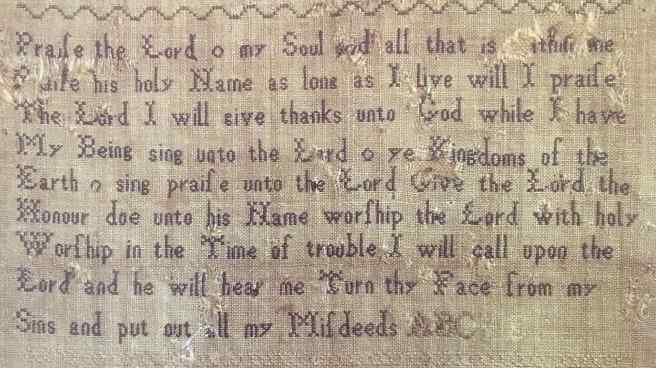 Praiſe the Lord o my Soul and all that is within me
Praiſe his holy Name as long as I live will I praiſe
The Lord I will give thanks unto God while I have
My Being sing unto the Lord o ye Kingdoms of the
Earth o sing praiſe unto the Lord Give the Lord the
Honour doe unto his Name worſhip the Lord with holy
Worſhip in the Time of trouble I will call upon the
Lord and he will hear me Turn thy Face from my
Sins and put out all my Miſdeeds ABC